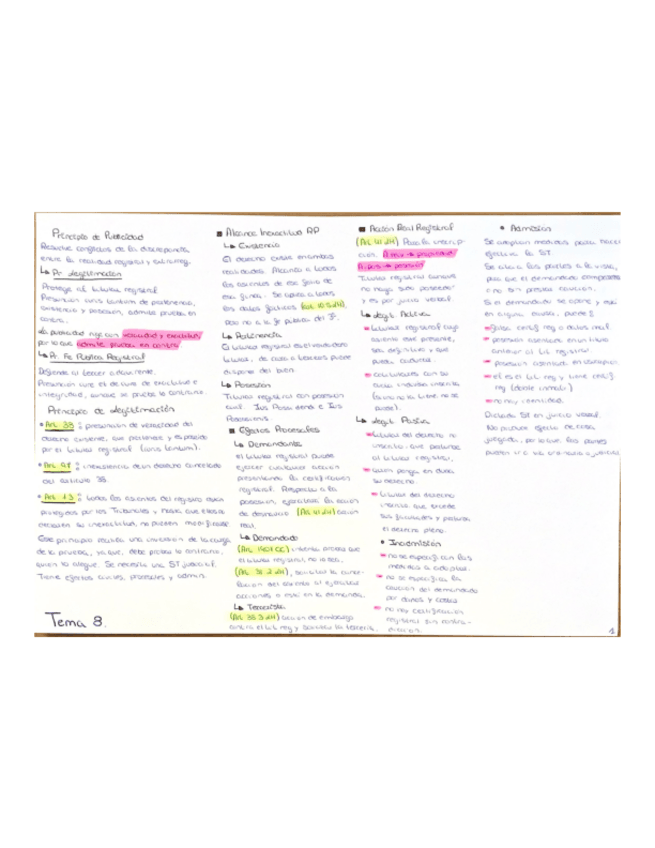 Principio de Publicidad
Resuelve conflictos de la discrepancia
entre la realidad registral y extrareg.
↳ Pr. Legitimación
Protege al titular registral
Presunción iuris tantum de pertenencia,
existencia y posesión, admite prueba en
contra.
La publicidad rige con veracidad y exactitud,
por lo que admite prueba en contra
↳ Pr. Fe Pública Registral
Defiende al tercer adquirente.
Presunción iure et de iure de exactitud e
integridad, aunque se pruebe lo contrario.
Principio de Legitimación
• Art. 38: presunción de veracidad del
derecho existente, que pertenece y es poseído
por el titular registral (iuris tantum).
• Art. 97: inexistencia de un derecho cancelado
del artículo 38.
• Art. 1.3: todos los asientos del registro están
protegidos por los Tribunales y hasta que ellos no
declaren su inexactitud, no pueden modificarse
Este principio realiza una inversión de la carga
de la prueba, ya que, debe probar lo contrario,
quien lo alegue. Se necesita una ST judicial.
Tiene efectos civiles, procesales y admin.
Tema 8.
■ Alcance Inexactitud RP
↳ Existencia
El derecho existe en ambas
realidades. Alcanza a todos
los asientos de ese folio de
esa finca. Se aplica a todos
los datos físicos (art. 10.5 LH),
pero no a la fe pública del
↳ Pertenencia
El titular registral es el verdadero
titular, de cara a terceros puede
disponer del bien.
↳ Posesión
Titular registral con posesión
civil. Ius Possidendi e Ius
Possessionis.
■ Efectos Procesales
↳ Demandante
el titular registral puede
ejercer cualquier acción
presentando la certificación
registral. Respecto a la
posesión, ejercitará la acción
de desahucio (Art. 41 LH) acción
real.
↳ Demandado
(Art. 1401 CC) intenta probar que
el titular registral no lo sea,
(Art. 38.2 LH), solicitar la cance-
lación del asiento si ejercitan
acciones o está en la demanda.
↳ Tercerista
(Art. 38.3 LH) acción de embargo
contra el tit. reg y solicitar la tercería.
■ Acción Real Registral
(Art. 41 LH) Para la inscrip-
ción. A. reiv → propiedad
A. pos → posesión
Titular registral aunque
no haya sido poseedor
y es por juicio verbal
↳ Legit. Activa
- titular registral cuyo
asiento esté presente,
sea definitivo y que
pueda caducar.
- cotitulares con su
cuota indivisa inscrita
(si uno no la tiene no se
puede).
↳ Legit. Pasiva
- titular del derecho no
inscrito que perturbe
al titular registral.
- quien ponga en duda
su derecho.
- titular del derecho
inscrito que excede
sus facultades y perturba
el derecho pleno.
• Inadmisión
- no se especifican las
medidas a adoptar.
- no se especifica la
caución del demandado
por daños y costas
- no hay certificación
registral sin contra-
dicción.
• Admisión
Se adoptan medidas para hacer
efectiva la ST.
Se cita a las partes a la vista,
para que el demandado comparezca
o no sin prestar caución.
Si el demandado se opone y está
en alguna causa, puede:
- falsa certif. reg o datos mal.
- posesión adentada en un título
anterior al tit. registral.
- posesión adentada en usucapión.
- él es el tit. reg y tiene certif.
reg (doble inmatr.)
- no hay identidad.
Dictada ST en juicio verbal.
No produce efecto de cosa
juzgada, por lo que, las partes
pueden ir a vía ordinaria o judicial.
1